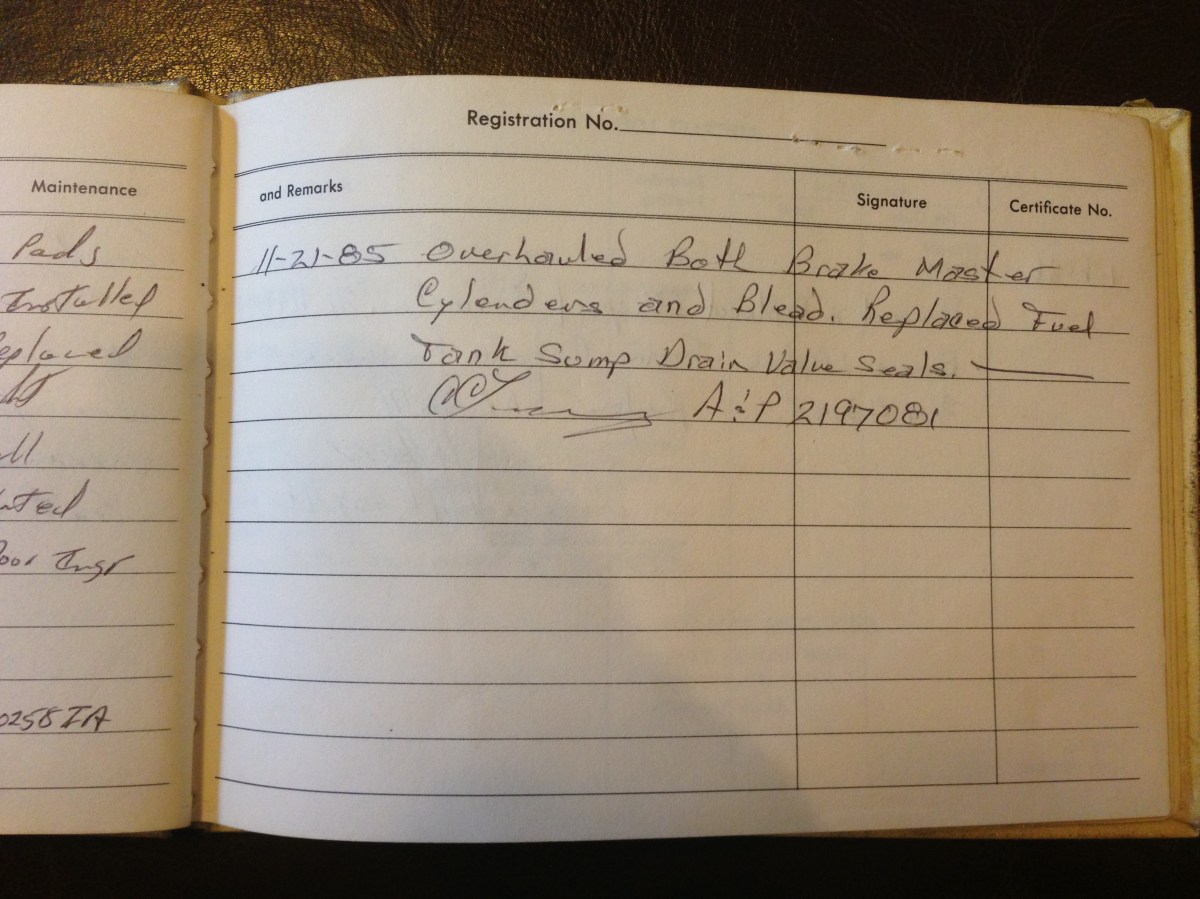 Maintenance
Pads
Installed
eplaced
ll
nted
oor Insp
0258 IA
Registration No.
and Remarks
Signature
Certificate No.
11-21-85 Overhauled Both Brake Master
Cylenders and Blead. Replaced Fuel
Tank Sump Drain Valve Seals.
A & P 2197081